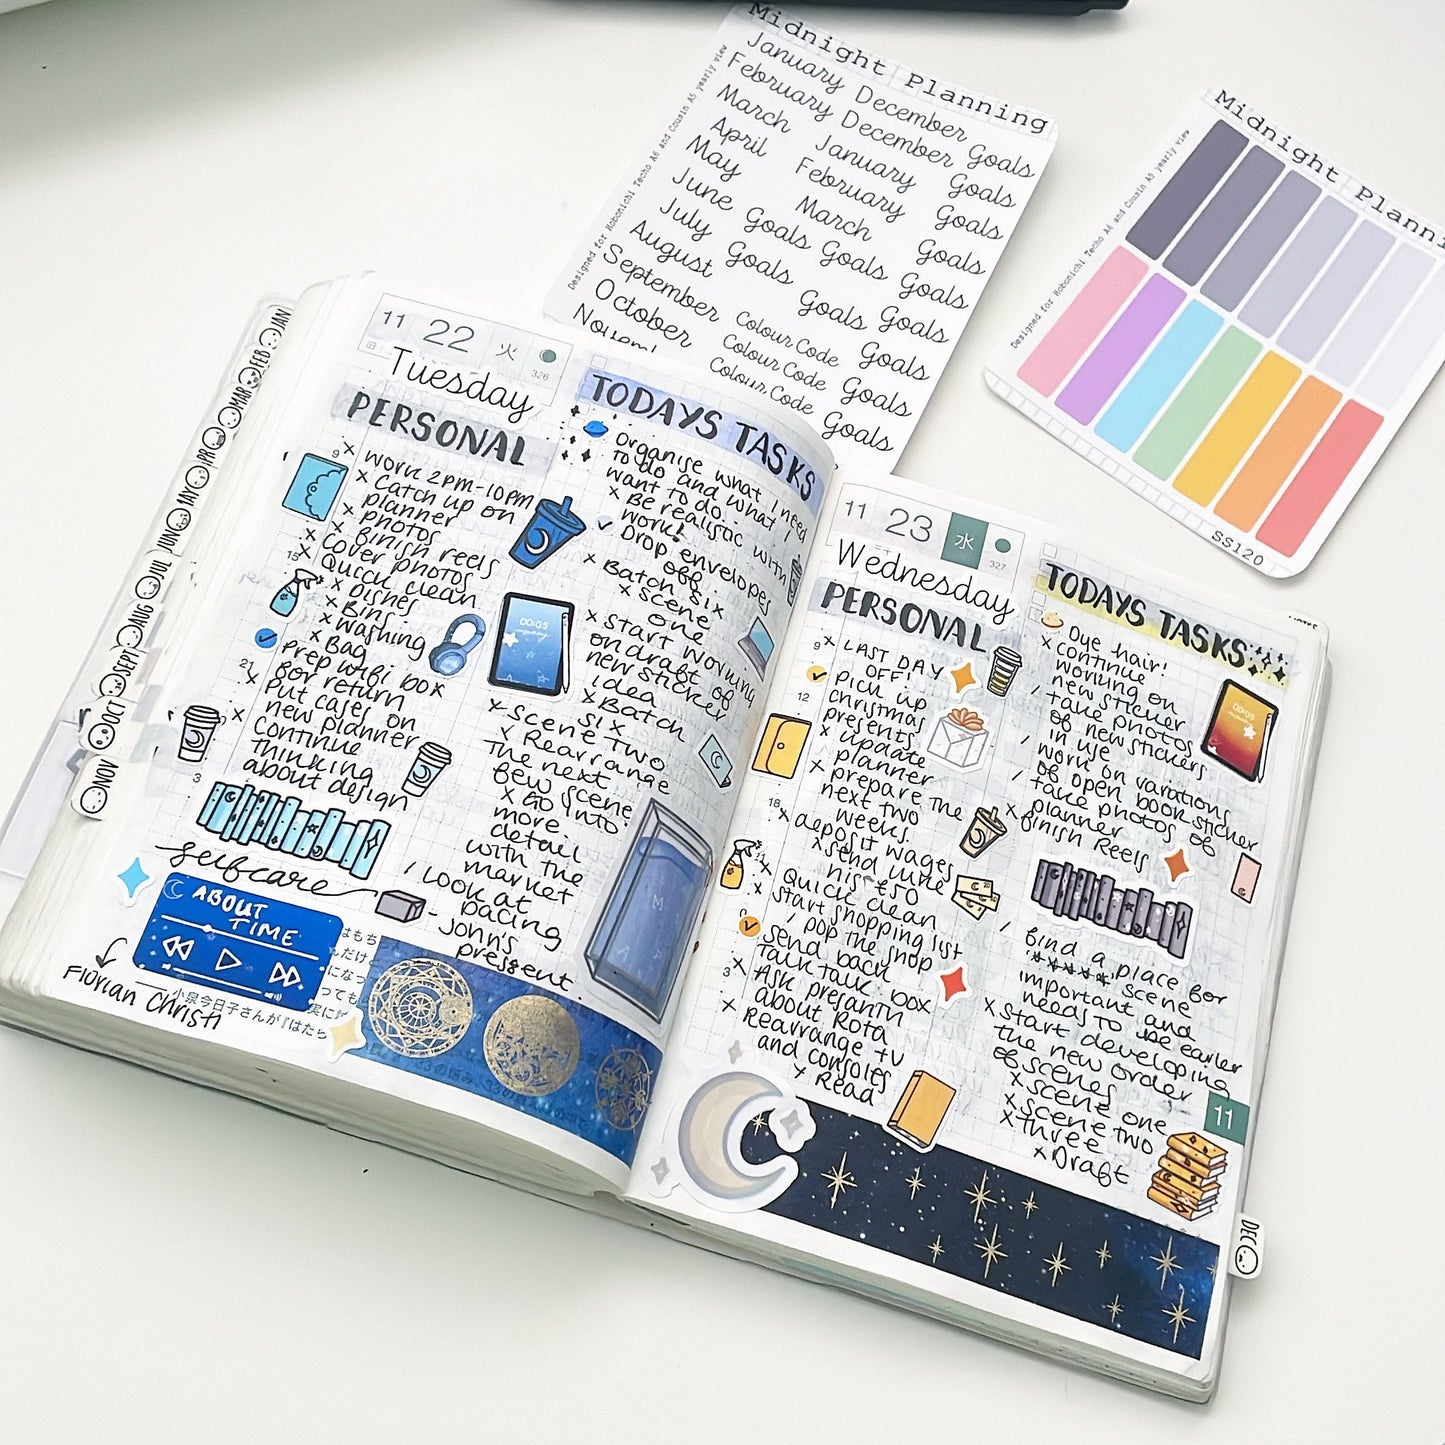 Midnight Planning
January
February
March
April
May
June
July
August
September
October
December
December
January
February
March
Goals
Goals
Goals
Goals
Goals
Goals
Goals
Goals
Goals
Goals
Goals
Goals
Goals
Goals
Colour Code
Colour Code
Colour Code
Designed for Hobonichi Techo A6 and Cousin A5 yearly view
Midnight Planni
Designed for Hobonichi Techo A6 and Cousin A5 yearly view
SS120
JAN
FEB
MAR
APR
MAY
JUN
JUL
AUG
SEPT
OCT
NOV
11 22 火
326
Tuesday
PERSONAL
9
x work 2pm-10pm
x Catch up on
planner
x photos
x finish reels
x Cover photos
15
Quick clean
x Dishes
x Bins
x washing
x Bag
Prep wifi box
21
for return
x Put cases on
new planner
x Continue
thinking
about design
3
selfcare
ABOUT
TIME
Florian Christl
TODAYS TASKS
Organise what I need
to do and what I
want to do..
x Be realistic with
work!
Drop envelopes
off.
x Batch six
x scene
one
x start working
on draft of
new sticker
idea
x Batch
six
x Scene Two
x Rearrange
the next
few scene
x Go into
more.
detail
with the
market
/ Look at
pacing
- John's
present.
00:05
はもち
んだけ
になっ
っても
実に
小泉今日子さんが『はたら
11 23 水
327
Wednesday
PERSONAL
9
x LAST DAY
OFF!
12
Pick up
christmas
presents
x update
planner
x prepare the
next two
weeks.
18
x deposit wages
x send June
his £50
x Quick clean
x start shopping list
/ pop the shop
Send back
Talk talk box
3
x Ask presanth
about Rota
x Rearrange tv
and consoles
x Read
TODAYS TASKS
Dye hair!
x continue
working on
new sticker
/ take photos
of new stickers
in use
/ work on variations
of open book sticker
/ take photos of
planner
x finish Reels
00:05
/ find a place for
***** scene
important and
needs to be earlier
x start developing
the new order
of scenes
x scene one
x scene two
x three
x Draft
11
DEC